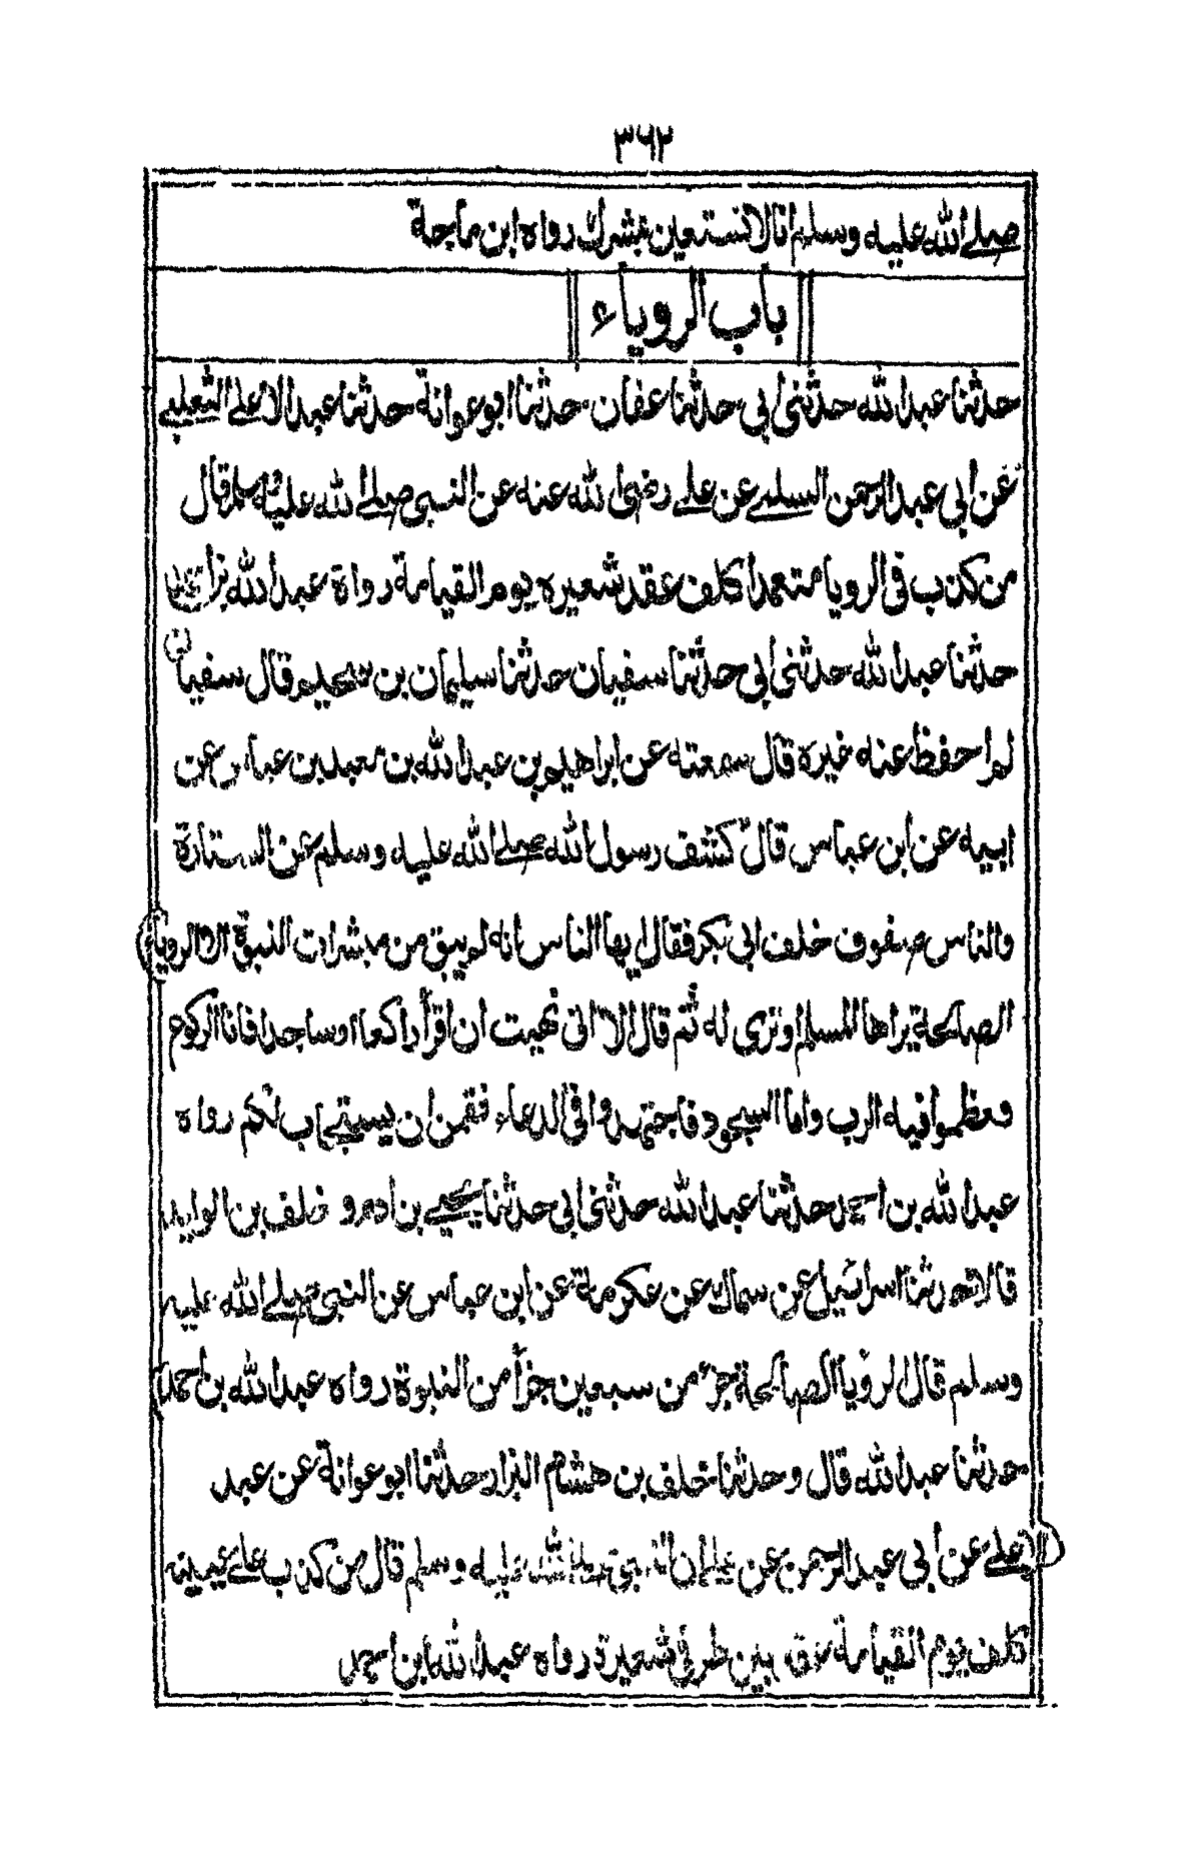 ٣٦٢
صلے الله عليه وسلم انا لا نستعين بمشرك رواه ابن ماجة
باب الروياء
حدثنا عبد الله حدثنى ابى حدثنا عفان حدثنا ابو عوانة حدثنا عبد الاعلے الثعلبے
عن ابى عبد الرحمن السلمے عن علے رضى الله عنه عن النبى صلے الله عليه وسلم قال
من كذب فى الرويا متعمدا كلف عقد شعيره يوم القيامة رواة عبد الله بن
حدثنا عبد الله حدثنى ابى حدثنا سفيان حدثنا سليمان بن سحيم قال سفيان
لم احفظ عنه غيره قال سمعته عن ابراهيم بن عبد الله بن معبد بن عباس عن
ابيه عن ابن عباس قال كشف رسول الله صلے الله عليه وسلم عن الستارة
والناس صفوف خلف ابى بكر فقال ايها الناس انه لم يبق من مبشرات النبوة الا الروياء
الصالحة يراها المسلم او ترى له ثم قال الا انى نهيت ان اقرأ راكعا او ساجدا فانا الركوع
فعظموا فيه الرب واما السجود فاجتهدوا فى الدعاء فقمن ان يستجاب لكم رواه
عبد الله بن احمد حدثنا عبد الله حدثنى ابى حدثنا يحيے بن ادم و خلف بن الوليد
قالا حدثنا اسرائيل عن سماك عن عكرمة عن ابن عباس عن النبى صلے الله عليه
وسلم قال الرؤيا الصالحة جزء من سبعين جزأ من النبوة رواه عبد الله بن احمد
حدثنا عبد الله قال وحدثنا خلف بن هشام البزار حدثنا ابو عوانة عن عبد
الاعلے عن ابى عبد الرحمن عن علے ان النبى صلے الله عليه وسلم قال من كذب علے عينيه
كلف يوم القيامة عقد بين طرفى شعيرة رواه عبد الله ابن احمد